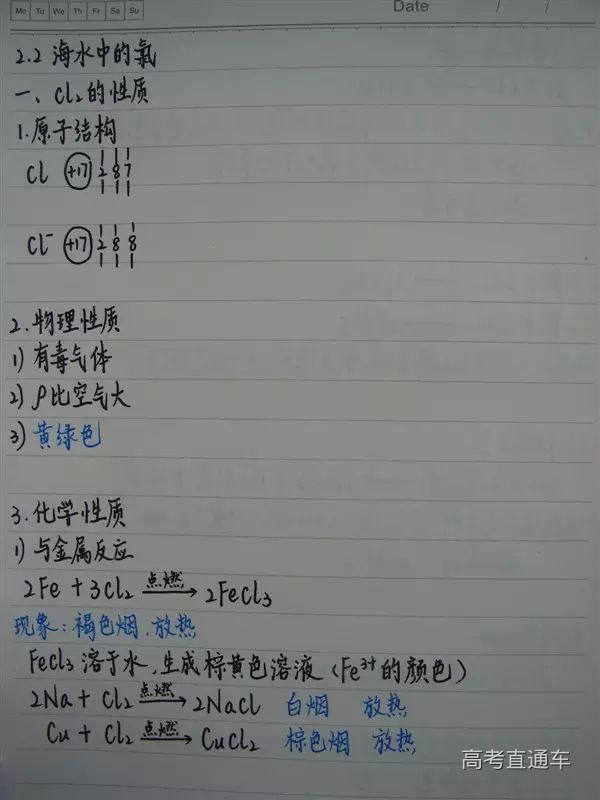 Mo Tu We Th Fr Sa Su
Date / /
2.2 海水中的氯
一、Cl₂的性质
1.原子结构
Cl +17 2 8 7
Cl⁻ +17 2 8 8
2.物理性质
1) 有毒气体
2) ρ比空气大
3) 黄绿色
3.化学性质
1) 与金属反应
2Fe + 3Cl₂ 点燃→ 2FeCl₃
现象：褐色烟.放热
FeCl₃溶于水,生成棕黄色溶液(Fe³⁺的颜色)
2Na + Cl₂ 点燃→ 2NaCl 白烟 放热
Cu + Cl₂ 点燃→ CuCl₂ 棕色烟 放热
高考直通车